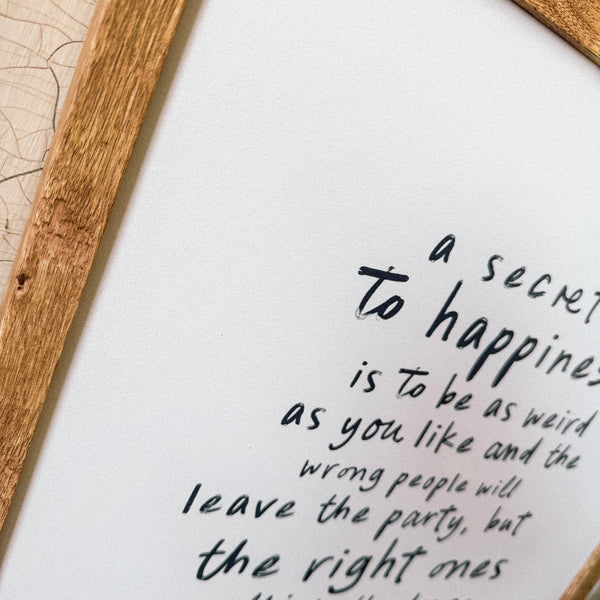 a secret
To happines
is To be as weird
as you like and the
wrong people will
leave the party, but
the right ones